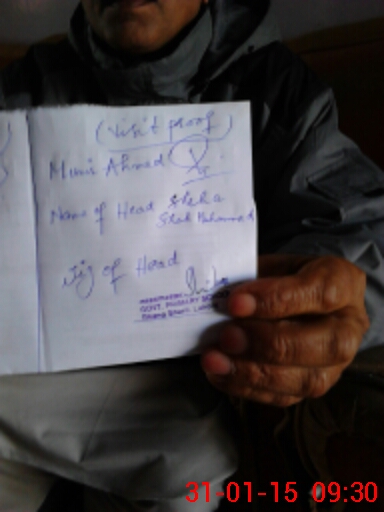 (visit proof)
Munir Ahmad
Name of Head Shaha
Shah Muhammad
Sig of Head
GOVT. PRIMARY SCHOOL
31-01-15 09:30